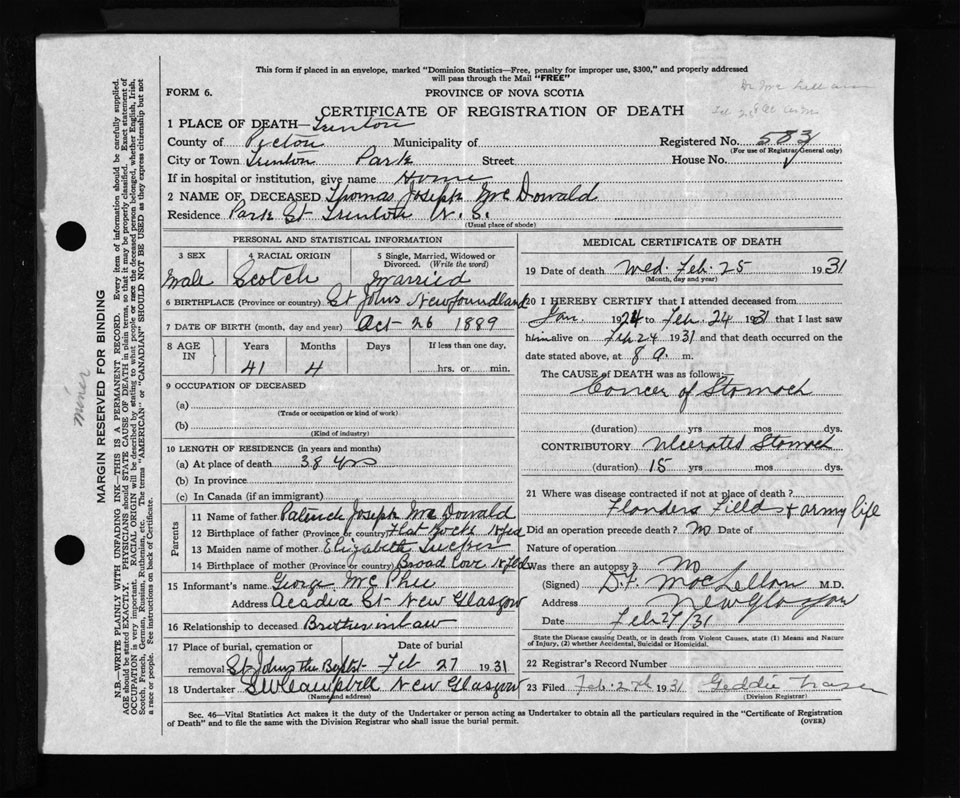 This form if placed in an envelope, marked "Dominion Statistics—Free, penalty for improper use, $300," and properly addressed
will pass through the Mail "FREE"
FORM 6.
PROVINCE OF NOVA SCOTIA
CERTIFICATE OF REGISTRATION OF DEATH
1 PLACE OF DEATH—Trenton
County of Pictou Municipality of Registered No. 583
(For use of Registrar General only)
City or Town Trenton Park Street House No.
If in hospital or institution, give name Home
2 NAME OF DECEASED Thomas Joseph McDonald
Residence Park St Trenton N.S.
(Usual place of abode)
PERSONAL AND STATISTICAL INFORMATION
3 SEX 4 RACIAL ORIGIN 5 Single, Married, Widowed or Divorced. (Write the word)
Male Scotch Married
6 BIRTHPLACE (Province or country) St Johns Newfoundland
7 DATE OF BIRTH (month, day and year) Oct-26 1889
8 AGE IN Years Months Days If less than one day,
41 4 hrs. or min.
9 OCCUPATION OF DECEASED
(a)
(Trade or occupation or kind of work)
(b)
(Kind of industry)
10 LENGTH OF RESIDENCE (in years and months)
(a) At place of death 38 yrs
(b) In province
(c) In Canada (if an immigrant)
Parents
11 Name of father Patrick Joseph McDonald
12 Birthplace of father (Province or country) Flat Rock Nfld
13 Maiden name of mother Elizabeth
14 Birthplace of mother (Province or country) Broad Cove Nfld
15 Informant's name George McPhee
Address Acadia St New Glasgow
16 Relationship to deceased Brother in law
17 Place of burial, cremation or removal Date of burial
St Johns the Baptist Feb 27 1931
18 Undertaker Campbell New Glasgow
(Name and address)
MEDICAL CERTIFICATE OF DEATH
19 Date of death Wed. Feb. 25 1931
(Month, day and year)
20 I HEREBY CERTIFY that I attended deceased from
Jan. 1924 to Feb. 24 1931 that I last saw
him alive on Feb 24 1931 and that death occurred on the
date stated above, at 8 a. m.
The CAUSE of DEATH was as follows:—
Cancer of Stomach
(duration) yrs mos dys.
CONTRIBUTORY Ulcerated Stomach
(duration) 15 yrs mos dys.
21 Where was disease contracted if not at place of death?
Flanders Fields & army life
Did an operation precede death? No Date of
Nature of operation
Was there an autopsy? No
(Signed) D.F. MacLellan M.D.
Address New Glasgow
Date Feb 27/31
State the Disease causing Death, or in death from Violent Causes, state (1) Means and Nature
of Injury, and (2) whether Accidental, Suicidal or Homicidal.
22 Registrar's Record Number
23 Filed Feb. 27th 1931 Geddie Fraser
(Division Registrar)
Sec. 46—Vital Statistics Act makes it the duty of the Undertaker or person acting as Undertaker to obtain all the particulars required in the "Certificate of Registration
of Death" and to file the same with the Division Registrar who shall issue the burial permit.
(OVER)
miner
MARGIN RESERVED FOR BINDING
N.B.—WRITE PLAINLY WITH UNFADING INK—THIS IS A PERMANENT RECORD. Every item of information should be carefully supplied.
AGE should be stated EXACTLY. PHYSICIANS should STATE CAUSE OF DEATH in plain terms, so that it may be properly classified. Exact statement of
OCCUPATION is very important. RACIAL ORIGIN will be described by stating to what people or race the deceased person belonged, whether English, Irish,
Scotch, French, German, Russian, Ruthenian, etc. The terms "AMERICAN" or "CANADIAN" SHOULD NOT BE USED as they express citizenship but not
a race or people. See instructions on back of Certificate.